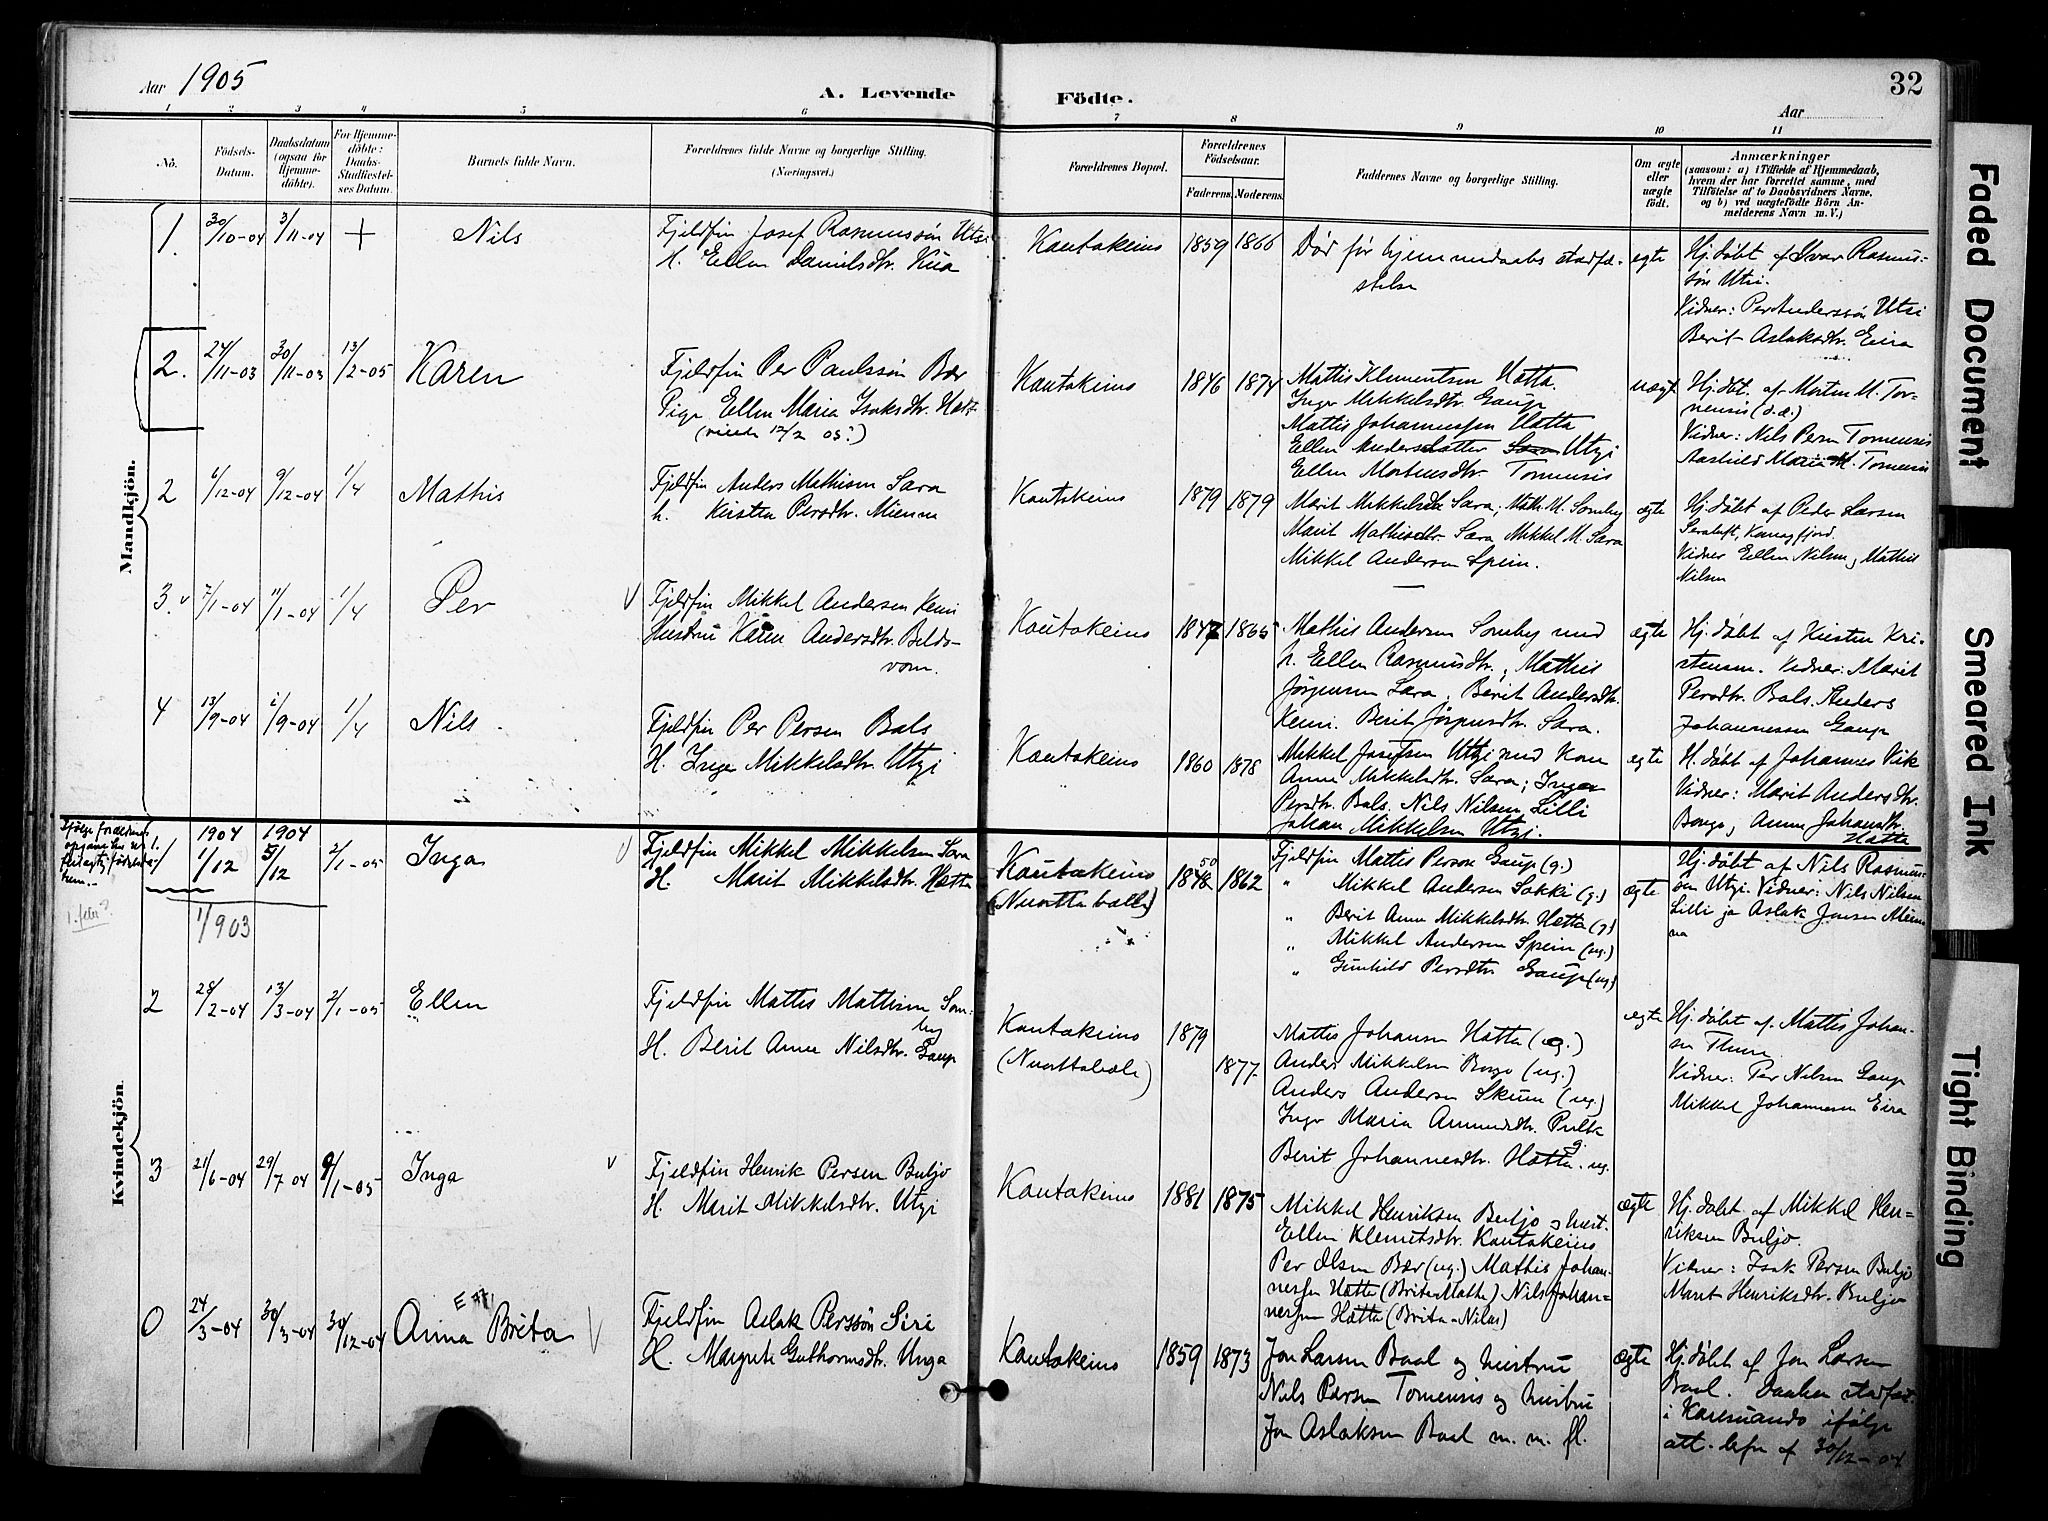 Aar 1905
A. Levende Födte.
32
Aar
1 2 3 4 5 6 7 8 9 10 11
No.
Födsels-Datum.
Daabsdatum (ogsaa for Hjemmedöbte).
For Hjemmedöbte: Daabs-Stadfæstelses Datum.
Barnets fulde Navn.
Forældrenes fulde Navne og borgerlige Stilling. (Næringsvei.)
Forældrenes Bopæl.
Forældrenes Födselsaar.
Faderens. Moderens.
Faddernes Navne og borgerlige Stilling.
Om ægte eller uægte födt.
Anmærkninger
(saasom: a) i Tilfælde af Hjemmedaab,
hvem der har forrettet samme, med
Tilföielse af to Daabsvidners Navne.
og b) ved uægtefödte Börn An-
melderens Navn m. V.)
Mandkjön.
1. 30/10-04 3/11-04 + Nils
Fjeldfin Josef Rasmussøn Utsi
H. Ellen Danielsdtr. Kua
Kautokeino 1859 1866
Død før hjemmedaabs stadfæ-
stelse
ægte
Hj. døbt af Ivar Rasmus-
søn Utsi.
Vidner: Per Anderssøn Utsi
Berit Aslaksdtr. Eira
2. 24/11-03 30/11-03 13/2-05 Karen
Fjeldfin Per Paulssøn Bær
Pige Ellen Maria Isaksdtr. Hætt
Kautokeino 1846 1874
Mattis Klementsen Hætta.
Inger Mikkelsdtr. Gaup
Mattis Johannessen Hætta
Ellen Andersdatter Utzi
Ellen Mortensdtr. Tornensis
uægt
Hj. døbt. af Morten M. Tor-
nensis
Vidner: Nils Persn Tornensis
Aashild Marie M. Tornensis
2 6/12-04 9/12-04 1/4 Mathis
Fjeldfin Anders Mathisen Sara
h. Kirsten Persdtr. Mienna
Kautokeino 1879 1879
Marit Mikkelsdtr Sara; Math. M. Somby
Marit Mathisdtr. Sara Mikkel M. Sara
Mikkel Andersen Spein.
ægte
Hj. døbt af Peder Larsen
Vidner Ellen Nilsen, Mathis
Nilsen
3. v 7/1-04 11/1-04 1/4 Per v
Fjeldfin Mikkel Andersen Kemi
Hustru Karen Andersdtr. Beldo-
vom.
Kautokeino 1847 1865
Mathis Andersen Somby med
h. Ellen Rasmusdtr., Mathis
Jørgensen Sara, Berit Andersdtr.
Kemi. Berit Jørgensdtr. Sara.
ægte
Hj. døbt af Kirsten Kri-
stensen. Vidner: Marit
Persdtr. Bals. Anders
Johannessen Gaup
4 13/9-04 /9-04 1/4 Nils
Fjeldfin Per Persen Bals
H. Inger Mikkelsdtr. Utzi
Kautokeino 1860 1878
Mikkel Josefsen Utzi med Kone
Anne Mikkelsdtr. Sara, Inger
Persdtr. Bals. Nils Nilsen Lilli
Johan Mikkelsen Utzi.
ægte
H. døbt af Johannes Vik
Vidner: Marit Andersdtr.
Bongo, Anne Johansdtr.
Hætta
Kvindekjön.
1 1904 1/12 1904 5/12 2/1-05 Inga v
1/903
1. febr?
Fjeldfin Mikkel Mikkelsen Sara
H. Marit Mikkelsdtr. Hætta
Kautokeino
1848 50 1862
Fjeldfin Mattis Persen Gaup (g.)
" Mikkel Andersen Sokki (g.)
" Berit Anne Mikkelsdtr. Hætta (g)
" Mikkel Andersen Spein (ug.)
" Gunhild Persdtr Gaup (ug)
ægte
Hj. døbt af Nils Rasmus-
sen Utzi. Vidner: Nils Nilsen
Lilli ja Aslak Jonsen Mien-
na
2 28/2-04 13/3-04 2/1-05 Ellen
Fjeldfin Mattis Mathisen Som-
by
H. Berit Anne Nilsdtr. Gaup
Kautokeino 1879 1877.
Mattis Johansen Hætta (ug.)
Anders Mikkelsen Bongo (ug.)
Anders Andersen Skum (ug.)
Inger Maria Amundsdtr. Pulk
Berit Johannesdtr. Hætta. ug.
ægte
Hj. døbt af Mattis Johan-
sen Thuri
Vidner: Per Nilsen Gaup
Mikkel Johannesen Eira
3 21/6-04 29/7 04 9/1-05 Inga v
Fjeldfin Henrik Persen Buljo
H. Marit Mikkelsdtr. Utzi
Kautokeino 1881 1875
Mikkel Henriksen Buljo og hust.
Ellen Klemetsdtr. Kautokeino
Per Olsen Bær (ug.) Mattis Johan-
nessen Hætta (Brita Matte) Nils Johan=
nessen Hætta (Brita-Nilas)
ægte
Hj. døbt af Mikkel Hen-
riksen Buljo.
Vidner: Isak Persen Buljo
Marit Henriksdtr. Buljo
0 24/3-04 30/3-04 30/12-04 Anna Brita v
Fjeldfin Aslak Perssøn Siri
H. Margrete Guthormsdtr. Unga
Kautokeino 1859 1873
Jon Larsen Baal og hustru
Nils Persen Tornensis og hustru
Jon Aslaksen Baal m. m. fl.
ægte
Hj. døbt af Jon Larsen
Baal. Daaben stadfæst.
i Karesuando ifølge
att. af 30/12-04
Faded Document
Smeared Ink
Tight Binding